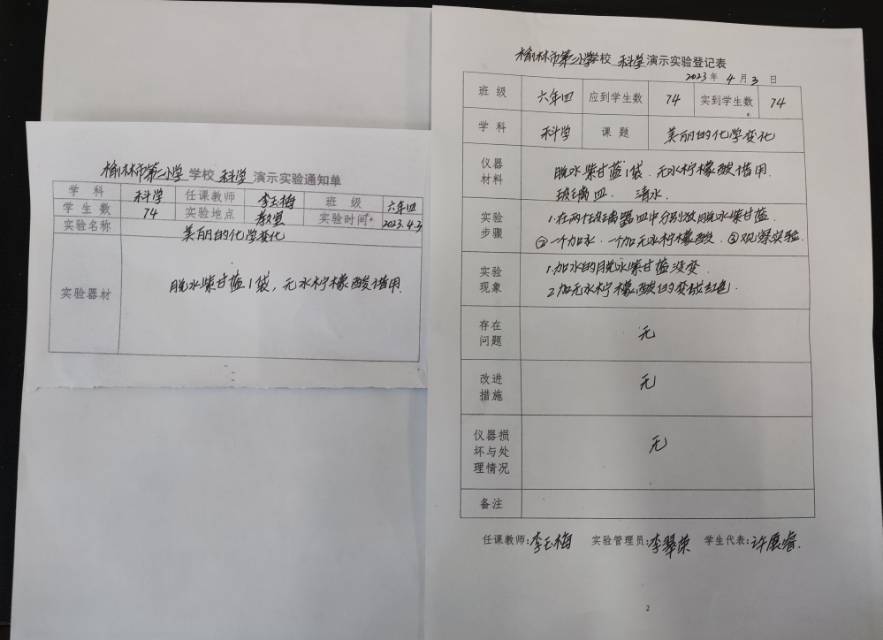 榆林市第二小学 学校 科学 演示实验通知单
学 科 科学 任课教师 李玉梅 班 级 六年四
学生数 74 实验地点 教室 实验时间 2023.4.3
实验名称 美丽的化学变化
实验器材 脱水紫甘蓝1袋，无水柠檬酸借用
榆林市第二小学学校 科学 演示实验登记表
2023 年 4 月 3 日
班 级 六年四 应到学生数 74 实到学生数 74
学 科 科学 课 题 美丽的化学变化
仪器材料 脱水紫甘蓝1袋 无水柠檬酸借用
玻璃皿 清水
实验步骤 1.在两个玻璃器皿中分别放脱水紫甘蓝
②一个加水，一个加无水柠檬酸 ③观察实验
实验现象 1.加水的脱水紫甘蓝没变
2.加无水柠檬酸的变成红色.
存在问题 无
改进措施 无
仪器损坏与处理情况 无
备注
任课教师:李玉梅 实验管理员:李翠荣 学生代表:许展睿.
2